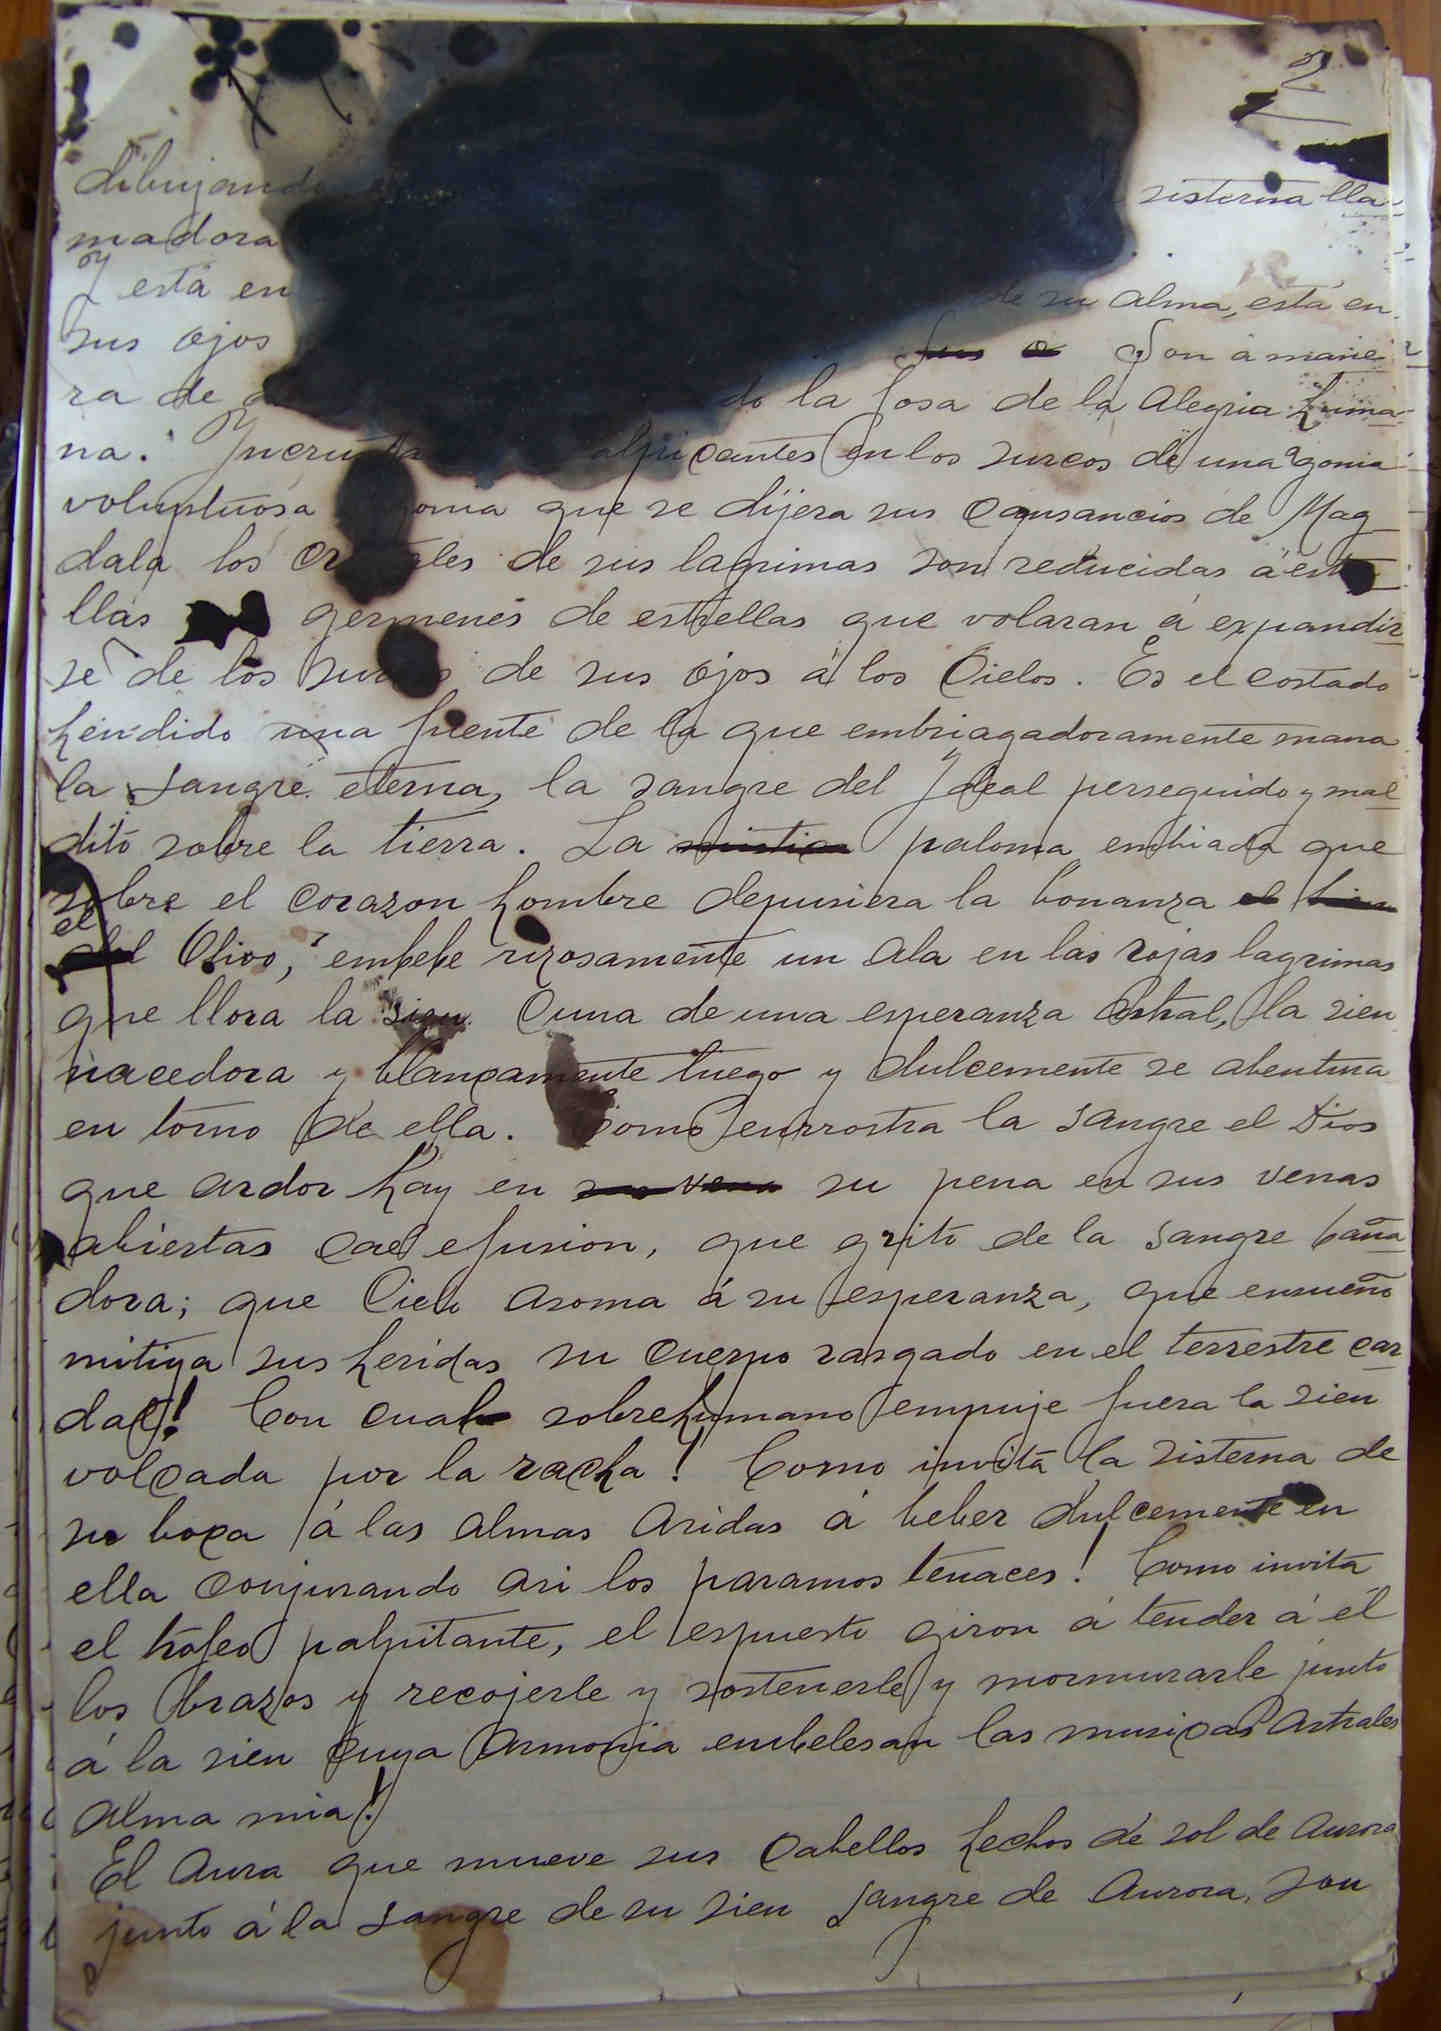 2
dibujando sisterna lla-
madora
Y está en de su alma, está en
sus ojos Son á mane
ra de do la fosa de la alegria huma-
na. en los surcos de una agonia
voluptuosa que se dijera sus cansancios de Mag
dala los de sus lagrimas son reducidas á
llas germenes de estrellas que volaran á expandir
se de los de sus ojos á los Cielos. Es el costado
hendido una fuente de la que embriagadoramente mana
la sangre eterna, la sangre del Ideal perseguido y mal
dito sobre la tierra. La paloma embiada que
sobre el corazon hombre depusiera la bonanza
el Olivo, embebe rizosamente un ala en las rojas lagrimas
que llora la sien. Cuna de una esperanza astral, la sien
nacedora y blancamente luego y dulcemente se abentura
en torno de ella. Como enrrostra la sangre el Dios
que ardor hay en su pena en sus venas
abiertas cae efusion, que grito de la sangre baña
dora; que Cielo asoma á su esperanza, que ensueño
mitiga sus heridas su cuerpo rasgado en el terrestre car
dal! Con cual sobrehumano empuje fuera la sien
volcada por la racha! Como invita la sisterna de
su boca á las almas aridas á beber dulcemente en
ella conjurando asi los paramos tenaces! Como invita
el trofeo palpitante, el espuesto giron á tender á él
los brazos y recojerle y sostenerle y mormurarle junto
á la sien cuya armonia embelesan las musicas astrales
alma mia!
El aura que mueve sus cabellos hechos de sol de aurora
junto á la sangre de su sien sangre de Aurora, son